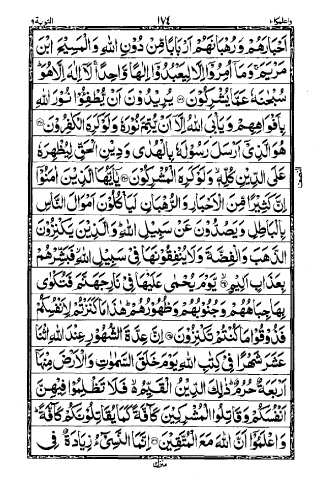 واعلموا ١٠ ١٧٤ التوبة ٩
اَحْبَارَهُمْ وَرُهْبَانَهُمْ اَرْبَابًا مِّنْ دُوْنِ اللهِ وَالْمَسِيْحَ ابْنَ
مَرْيَمَ ۚ وَمَاۤ اُمِرُوْۤا اِلَّا لِيَعْبُدُوْۤا اِلٰهًا وَّاحِدًا ۚ لَاۤ اِلٰهَ اِلَّا هُوَ ؕ
سُبْحٰنَهٗ عَمَّا يُشْرِكُوْنَ ۝ يُرِيْدُوْنَ اَنْ يُّطْفِـُٔوْا نُوْرَ اللهِ
بِاَفْوَاهِهِمْ وَيَاْبَى اللهُ اِلَّاۤ اَنْ يُّتِمَّ نُوْرَهٗ وَلَوْ كَرِهَ الْكٰفِرُوْنَ ۝
هُوَ الَّذِيْۤ اَرْسَلَ رَسُوْلَهٗ بِالْهُدٰى وَدِيْنِ الْحَقِّ لِيُظْهِرَهٗ
عَلَى الدِّيْنِ كُلِّهٖ ۙ وَلَوْ كَرِهَ الْمُشْرِكُوْنَ ۝ يٰۤاَيُّهَا الَّذِيْنَ اٰمَنُوْۤا
اِنَّ كَثِيْرًا مِّنَ الْاَحْبَارِ وَالرُّهْبَانِ لَيَاْكُلُوْنَ اَمْوَالَ النَّاسِ
بِالْبَاطِلِ وَيَصُدُّوْنَ عَنْ سَبِيْلِ اللهِ ؕ وَالَّذِيْنَ يَكْنِزُوْنَ
الذَّهَبَ وَالْفِضَّةَ وَلَا يُنْفِقُوْنَهَا فِيْ سَبِيْلِ اللهِ ۙ فَبَشِّرْهُمْ
بِعَذَابٍ اَلِيْمٍ ۝ يَّوْمَ يُحْمٰى عَلَيْهَا فِيْ نَارِ جَهَنَّمَ فَتُكْوٰى
بِهَا جِبَاهُهُمْ وَجُنُوْبُهُمْ وَظُهُوْرُهُمْ ؕ هٰذَا مَا كَنَزْتُمْ لِاَنْفُسِكُمْ
فَذُوْقُوْا مَا كُنْتُمْ تَكْنِزُوْنَ ۝ اِنَّ عِدَّةَ الشُّهُوْرِ عِنْدَ اللهِ اثْنَا
عَشَرَ شَهْرًا فِيْ كِتٰبِ اللهِ يَوْمَ خَلَقَ السَّمٰوٰتِ وَالْاَرْضَ مِنْهَاۤ
اَرْبَعَةٌ حُرُمٌ ؕ ذٰلِكَ الدِّيْنُ الْقَيِّمُ ۙ فَلَا تَظْلِمُوْا فِيْهِنَّ
اَنْفُسَكُمْ وَقَاتِلُوا الْمُشْرِكِيْنَ كَآفَّةً كَمَا يُقَاتِلُوْنَكُمْ كَآفَّةً ؕ
وَاعْلَمُوْۤا اَنَّ اللهَ مَعَ الْمُتَّقِيْنَ ۝ اِنَّمَا النَّسِيْٓءُ زِيَادَةٌ فِي
منزل